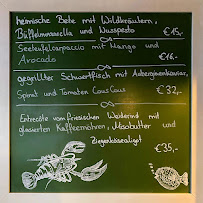 heimische Bete mit Wildkräutern,
Büffelmozzarella und Nusspesto €15,-
Seeteufelcarpaccio mit Mango und
Avocado €16,-
gegrillter Schwertfisch mit Auberginenkaviar,
Spinat und Tomaten CousCous €32,-
Entrecôte vom friesischen Weiderind mit
glasierten Kaffeemöhren, Maobutter und
€35,-